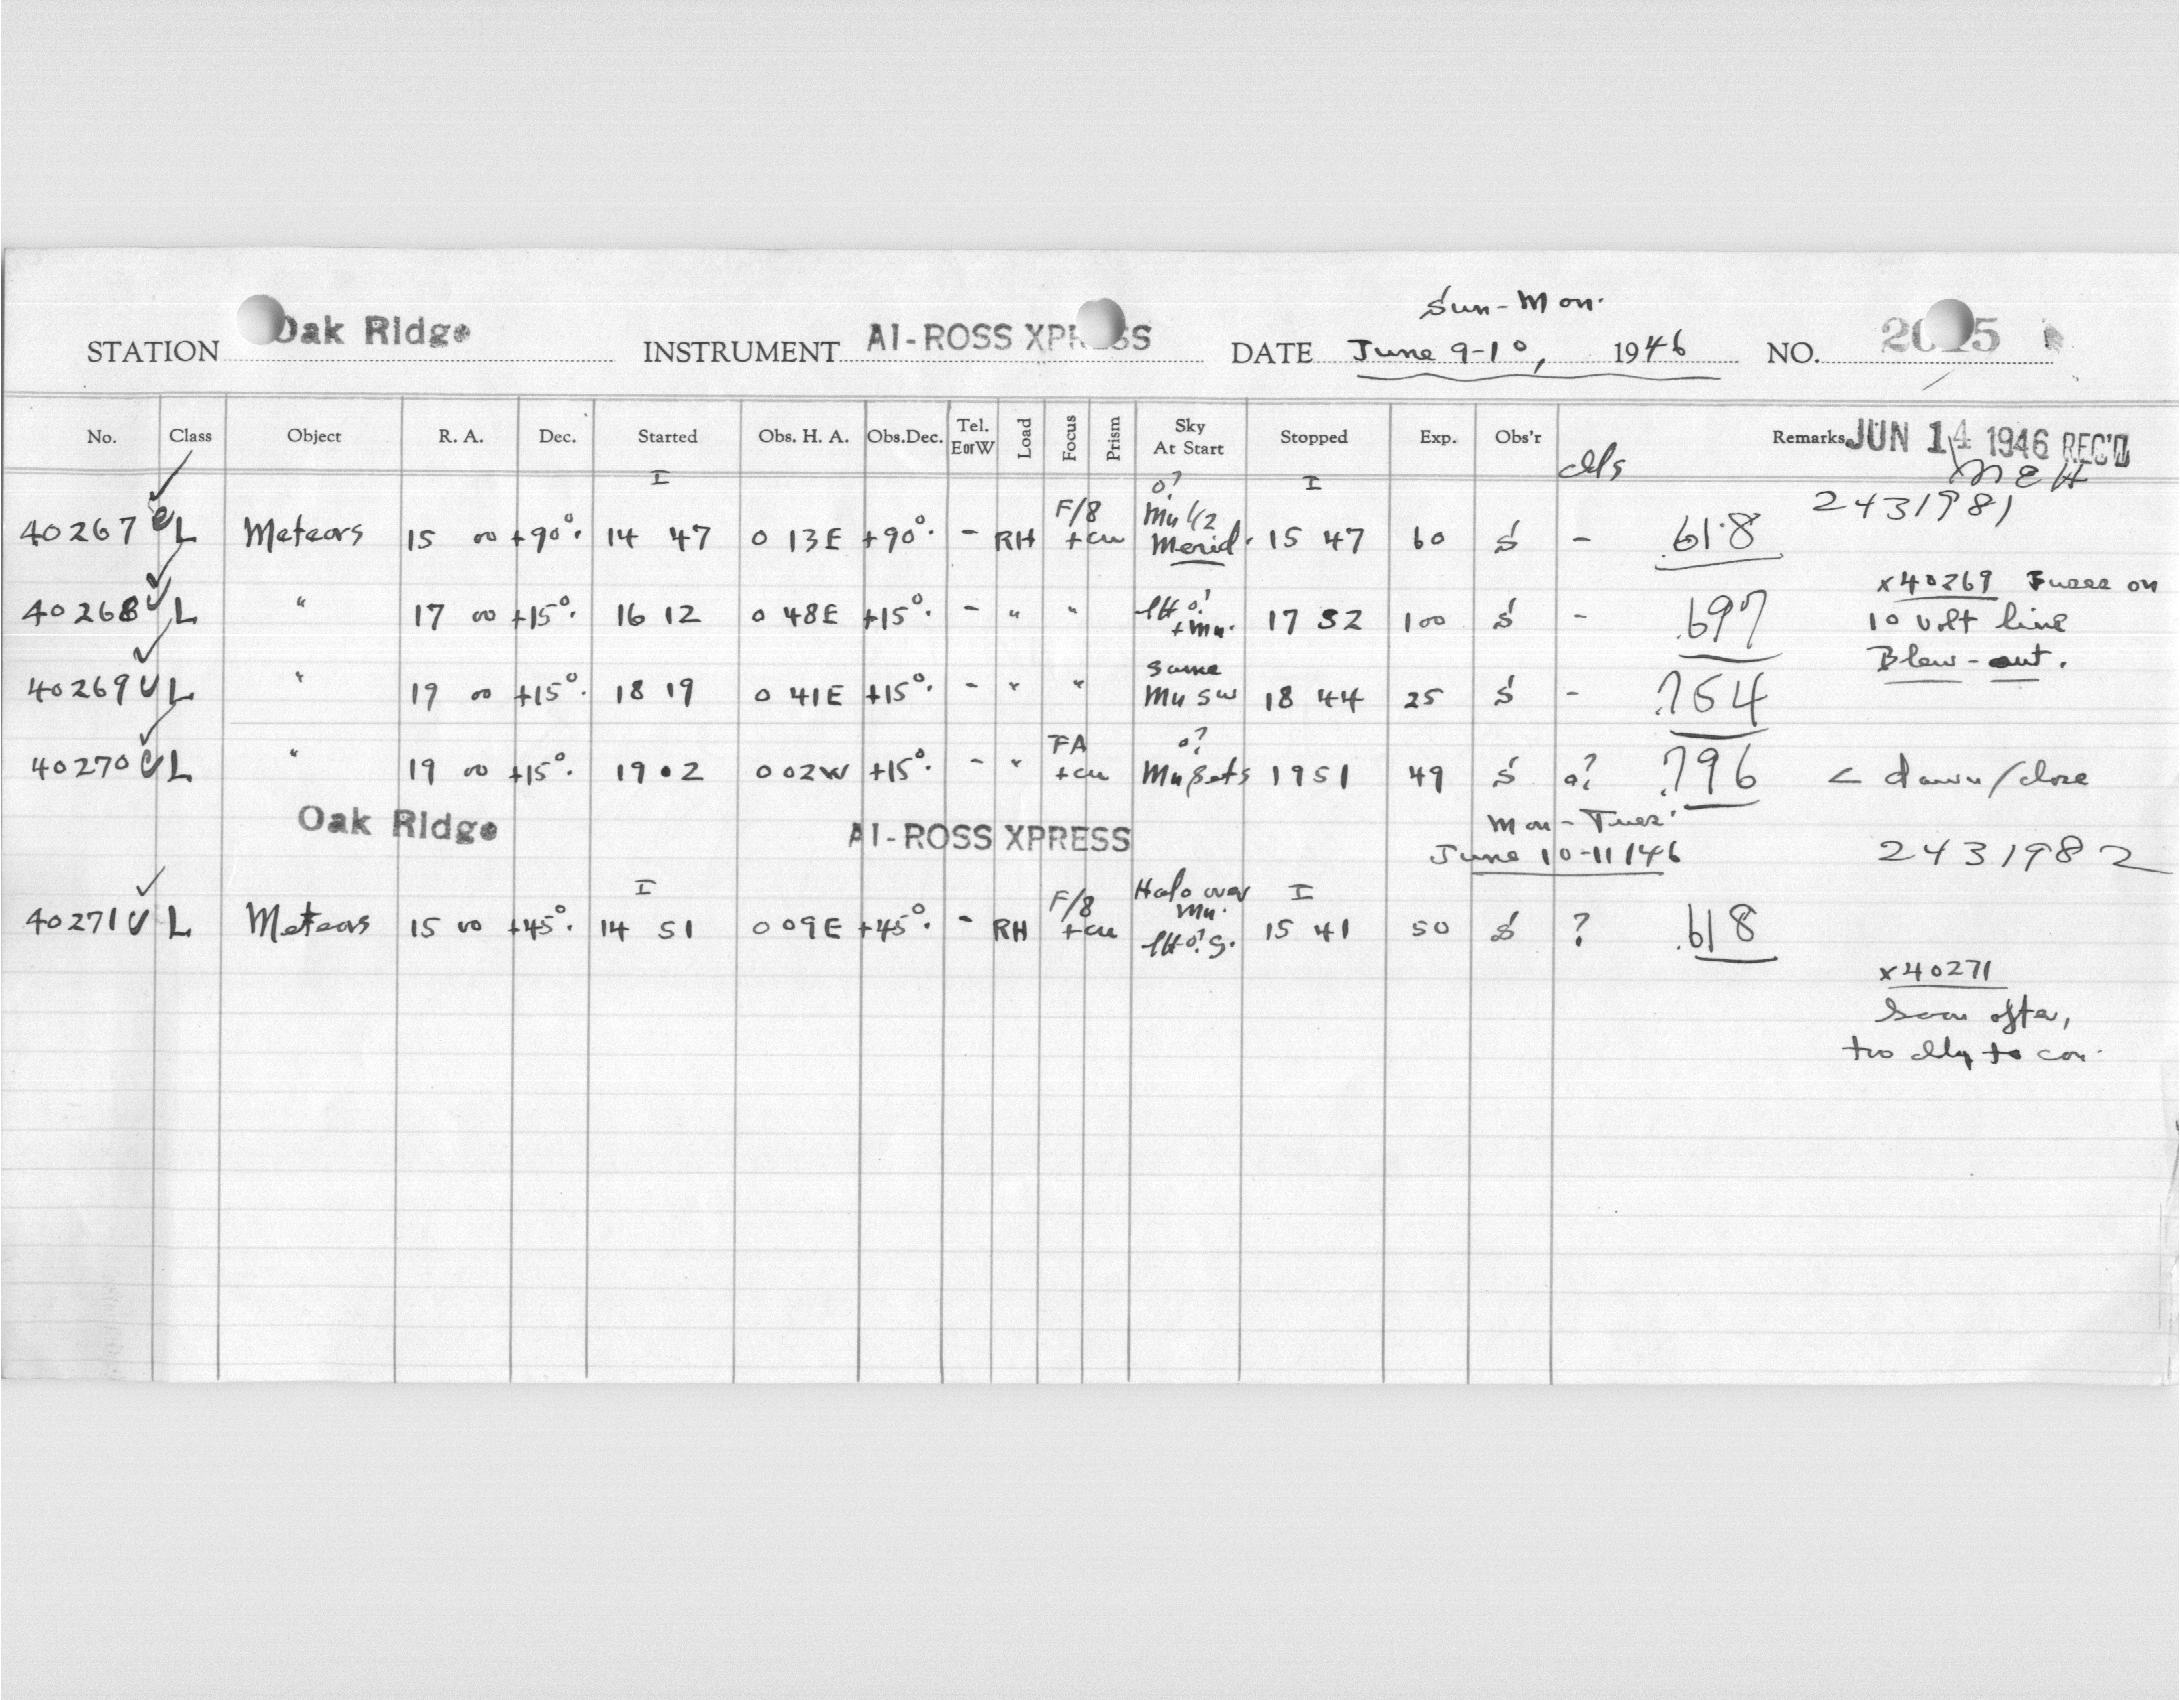 Sun-Mon.
STATION Oak Ridge INSTRUMENT AI-ROSS XPR SS DATE June 9-10, 1946 NO. 20 5
No. Class Object R. A. Dec. Started Obs. H. A. Obs.Dec. Tel. E or W Load Focus Prism Sky At Start Stopped Exp. Obs'r clds Remarks JUN 14 1946 REC'D
MEH
I o? I 2431981
40267 L Meteors 15 00 +90°. 14 47 0 13E +90°. - RH F/8 +cu Mn 1/2 Merid. 15 47 60 S - .618
40268 L " 17 00 +15°. 16 12 0 48E +15°. - " " o? +Mn. 17 52 100 S - .697
x40269 Fuses on
10 volt line
Blew-out.
40269 L " 19 00 +15°. 18 19 0 41E +15°. - " " same Mn SW 18 44 25 S - .764
40270 L " 19 00 +15°. 19 02 0 02W +15°. - " FA +cu o? Mn sets 19 51 49 S o? .796 < dawn/close
Oak Ridge AI-ROSS XPRESS Mon-Tues.
June 10-11/46 2431982
I I
40271 L Meteors 15 00 +45°. 14 51 0 09E +45°. - RH F/8 +cu Halo over Mn. o? S. 15 41 50 S ? .618
x40271
Soon after,
too cldy to con.